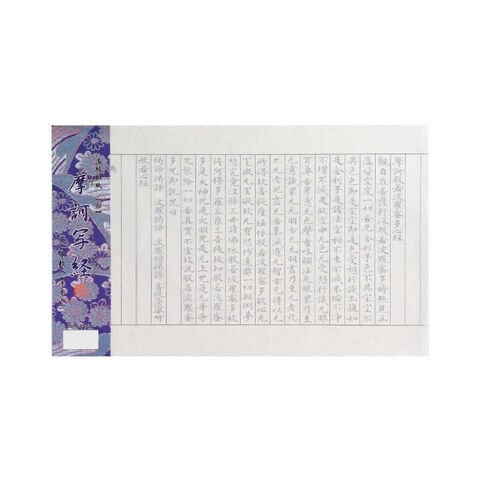 摩訶般若波羅蜜多心經
觀自在菩薩行深般若波羅蜜多時照見五
蘊皆空度一切苦厄舍利子色不異空空不
異色色即是空空即是色受想行識亦復如
是舍利子是諸法空相不生不滅不垢不淨
不增不減是故空中无色无受想行識无眼
耳鼻舌身意无色聲香味觸法无眼界乃至
无意識界无无明亦无无明盡乃至无老死
亦无老死盡无苦集滅道无智亦无得以无
所得故菩提薩埵依般若波羅蜜多故心无
罣礙无罣礙故无有恐怖遠離顛倒夢
想究竟涅槃三世諸佛依般若波羅蜜多故
得阿耨多羅三藐三菩提故知般若波羅蜜
多是大神咒是大明咒是无上咒是无等等
咒能除一切苦真實不虛故說般若波羅蜜
多咒即說咒曰
揭諦揭諦 波羅揭諦 波羅僧揭諦 菩提薩婆訶
般若心經
摩訶写経